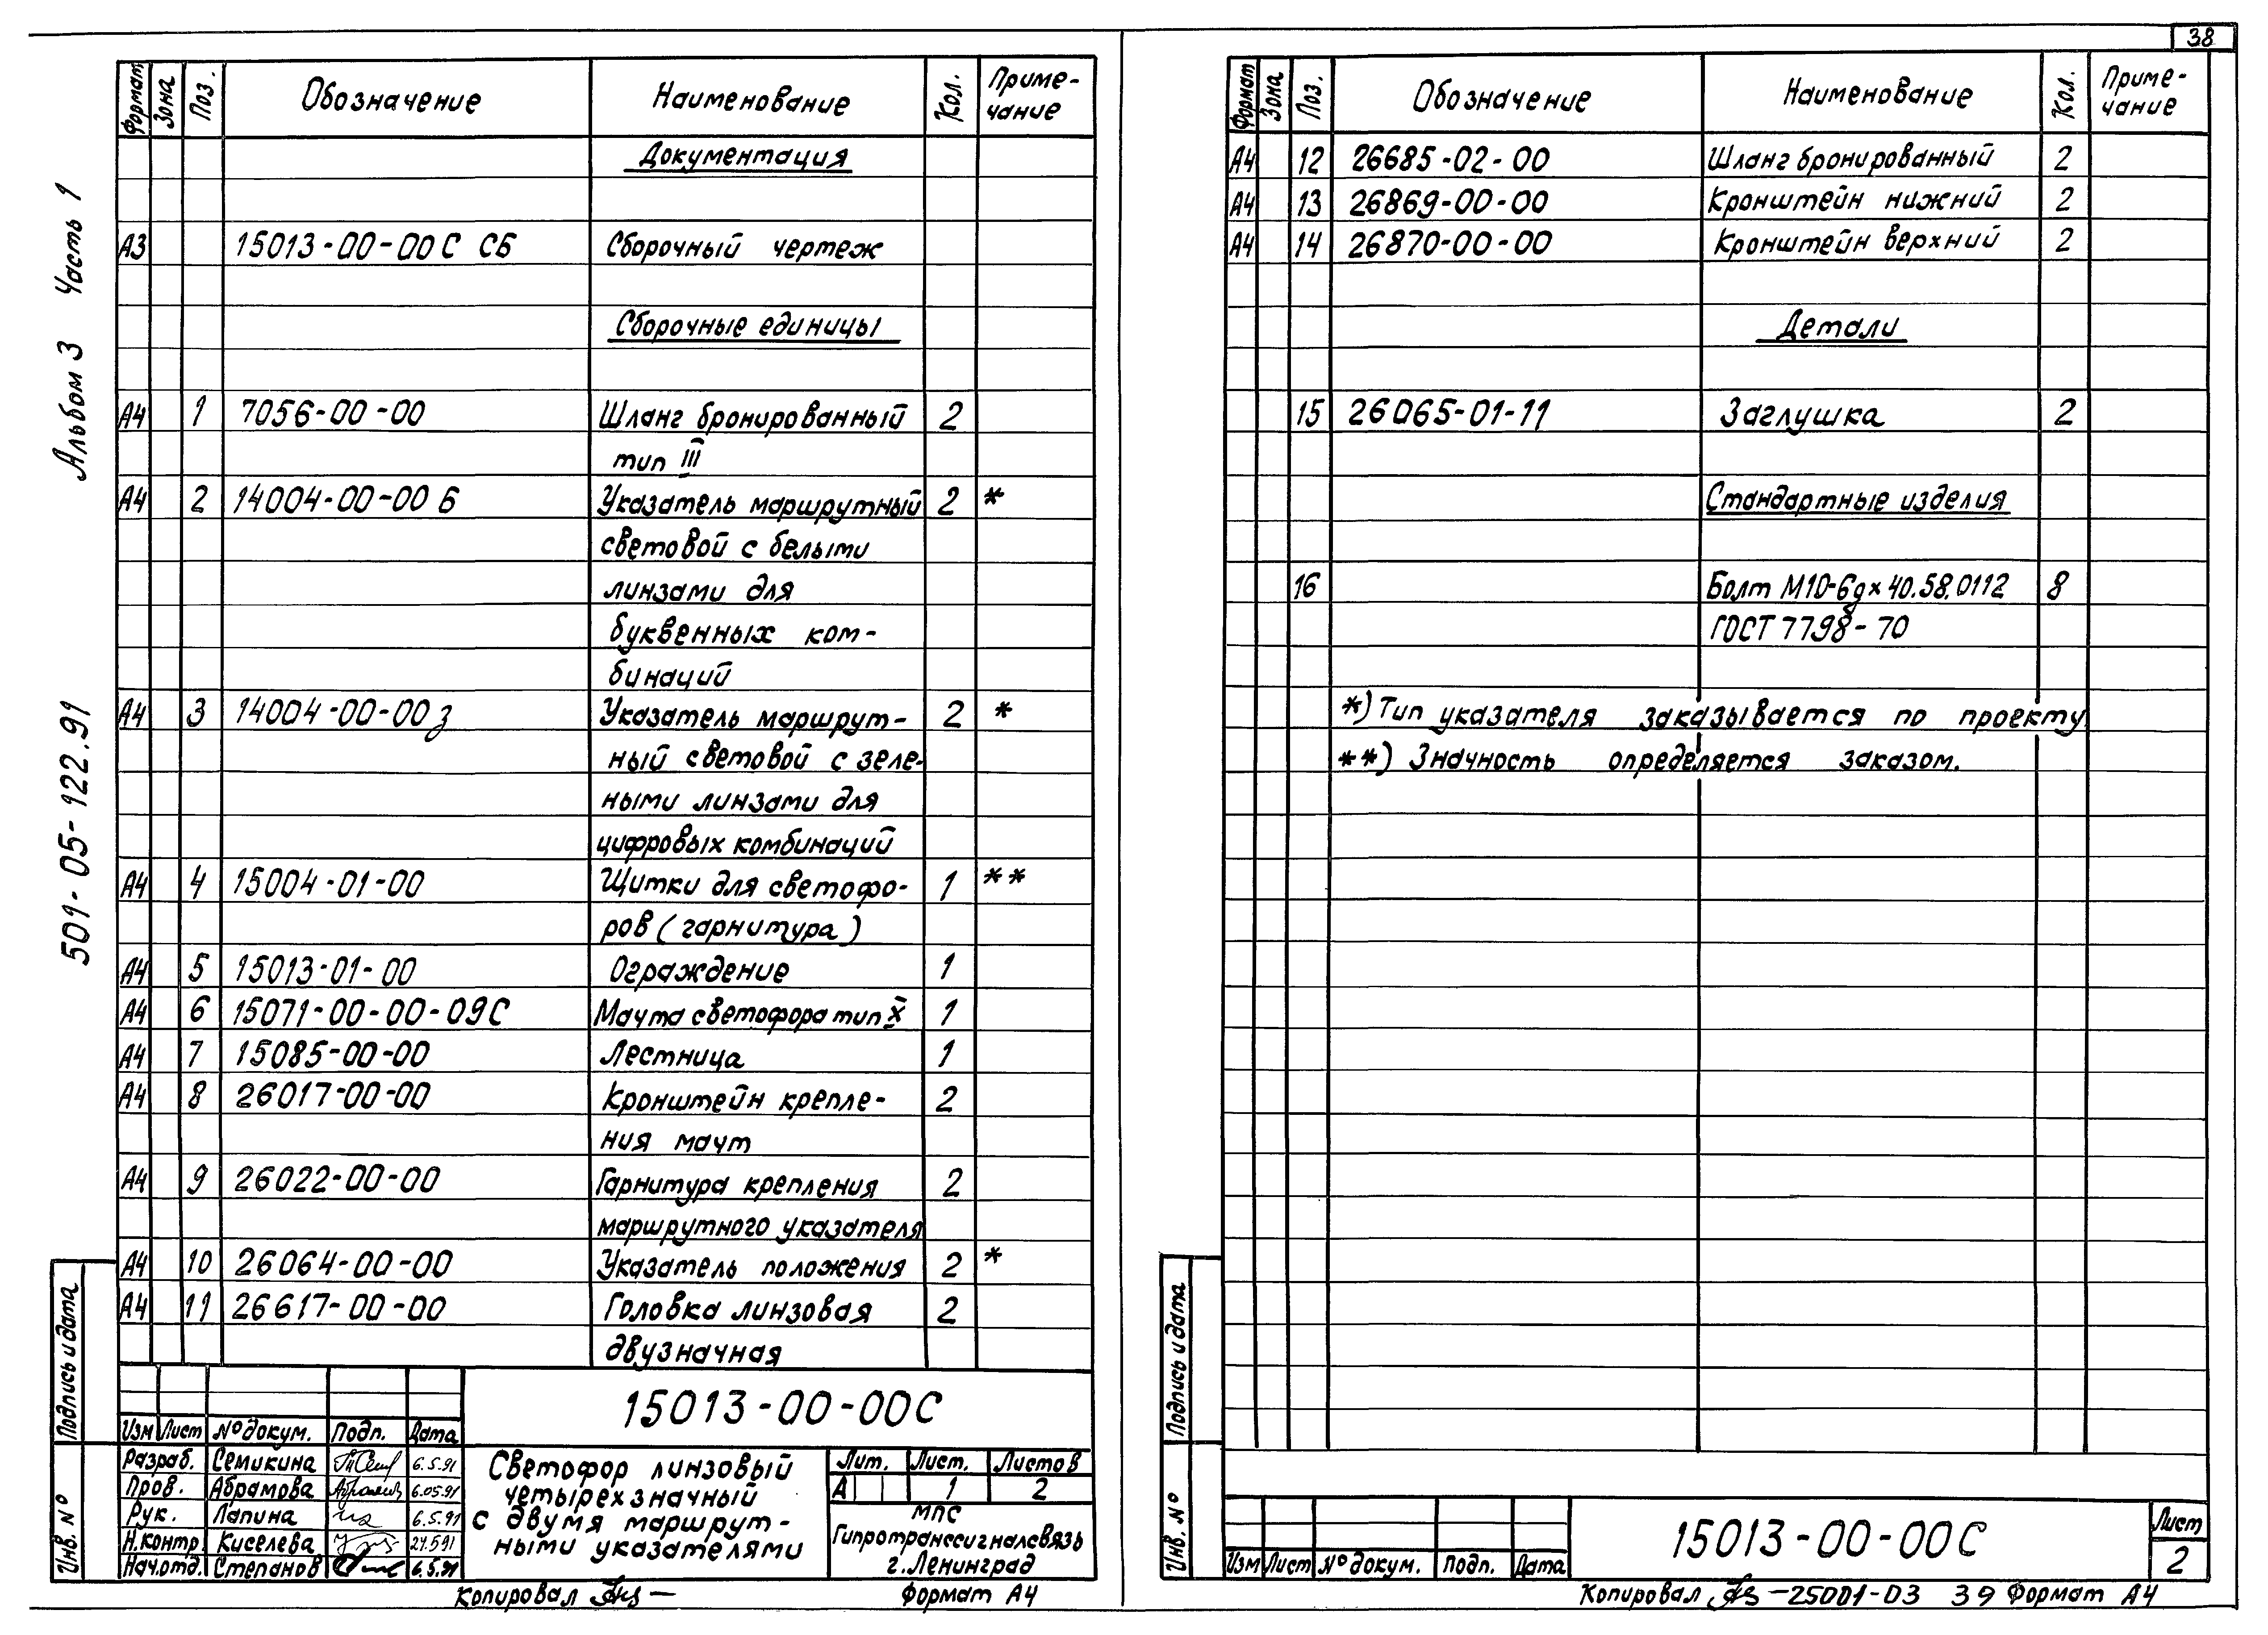 38
Альбом 3 Часть 1
501-05-122.91
Формат Зона Поз. Обозначение Наименование Кол. Приме-
чание
Документация
А3 15013-00-00С СБ Сборочный чертеж
Сборочные единицы
А4 1 7056-00-00 Шланг бронированный 2
тип III
А4 2 14004-00-00 Б Указатель маршрутный 2 *
световой с белыми
линзами для
буквенных ком-
бинаций
А4 3 14004-00-00 з Указатель маршрут- 2 *
ный световой с зеле-
ными линзами для
цифровых комбинаций
А4 4 15004-01-00 Щитки для светофо- 1 **
ров (гарнитура)
А4 5 15013-01-00 Ограждение 1
А4 6 15071-00-00-09С Мачта светофора тип X 1
А4 7 15085-00-00 Лестница 1
А4 8 26017-00-00 Кронштейн крепле- 2
ния мачт
А4 9 26022-00-00 Гарнитура крепления 2
маршрутного указателя
А4 10 26064-00-00 Указатель положения 2 *
А4 11 26617-00-00 Головка линзовая 2
двузначная
Подпись и дата
Инв. №
15013-00-00С
Изм Лист № докум. Подп. Дата
Разраб. Семикина 6.5.91
Пров. Абрамова 6.05.91
Рук. Лапина 6.5.91
Н.контр. Киселева 27.5.91
Нач.отд. Степанов 6.5.91
Светофор линзовый
четырехзначный
с двумя маршрут-
ными указателями
Лит. Лист. Листов
А 1 2
МПС
Гипротранссигналсвязь
г.Ленинград
Копировал Формат А4
Формат Зона Поз. Обозначение Наименование Кол. Приме-
чание
А4 12 26685-02-00 Шланг бронированный 2
А4 13 26869-00-00 Кронштейн нижний 2
А4 14 26870-00-00 Кронштейн верхний 2
Детали
15 26065-01-11 Заглушка 2
Стандартные изделия
16 Болт М10-6gх40.58.0112 8
ГОСТ 7798-70
*) Тип указателя заказывается по проекту
**) Значность определяется заказом.
Подпись и дата
Инв. №
Изм Лист № докум. Подп. Дата
15013-00-00С
Лист
2
Копировал -25001-03 39 Формат А4